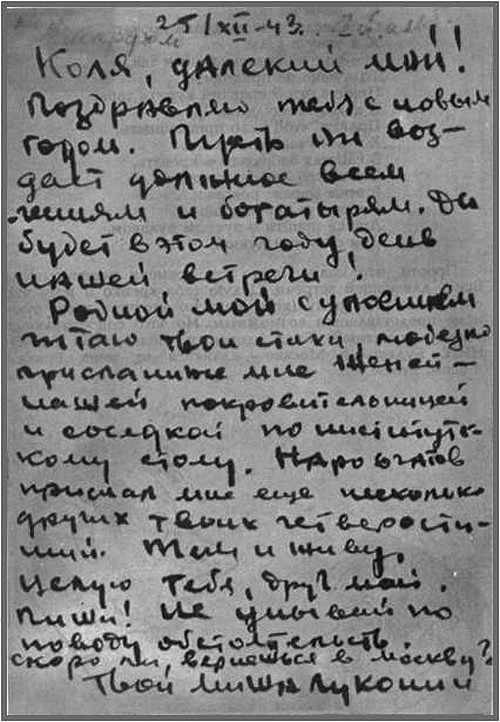 25/XII-43.
Коля, далекий мой!
Поздравляю тебя с новым
годом. Пусть он воз-
даст должное всем
и богатырям. Да
будет в этом году день
нашей встречи!
Родной мой с упоением
читаю твои стихи, любезно
присланные мне Женей –
нашей покровительницей
и соседкой по институтс-
кому столу. Наровчатов
прислал мне еще несколько
других твоих четверости-
ший. Тем и живу.
Целую тебя, друг мой.
Пиши! Не унывай по
поводу обстоятельств.
скоро ли, вернешься в москву?
Твой Миша Луконин